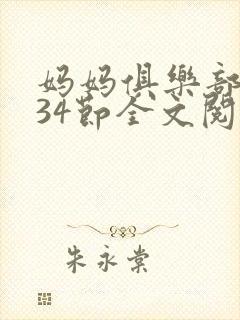 妈妈俱樂部
34節全文閱
朱永棠